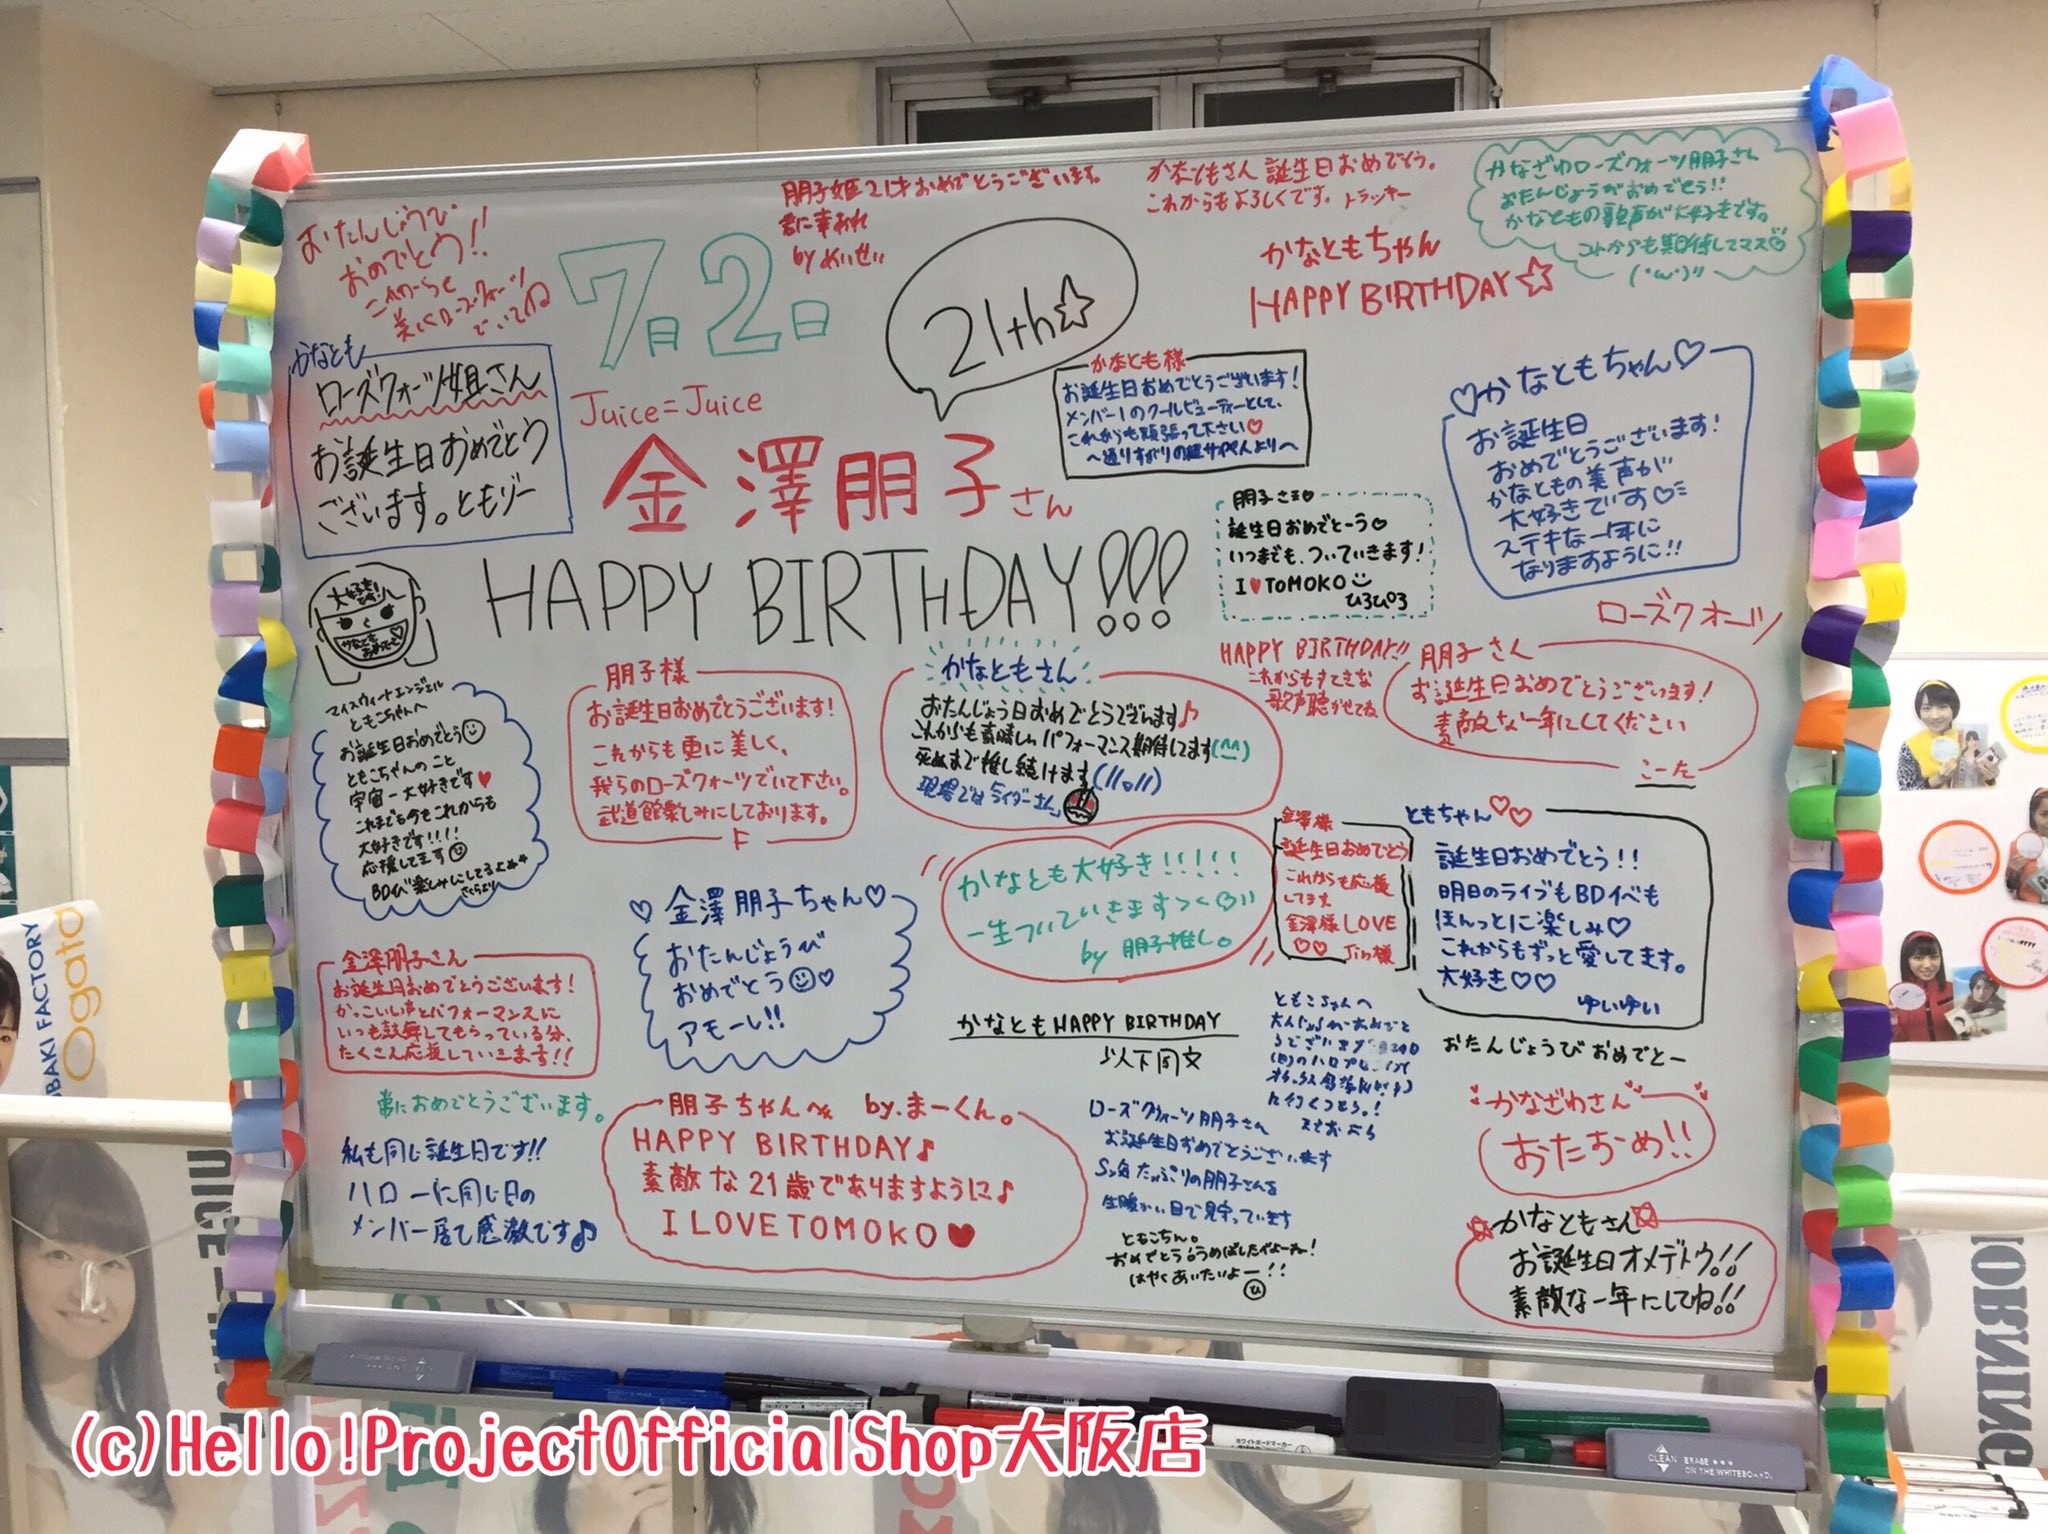 おたんじょうび
おめでとう!!
これからも
美しくローズクォーツ
でいてね
7月2日
朋子姫21才おめでとうございます。
君に幸あれ
by めいせい
21th☆
かなともさん 誕生日おめでとう。
これからもよろしくです。トラッキー
かなともちゃん
HAPPY BIRTHDAY☆
かなざわローズクォーツ朋子さん
おたんじょうびおめでとう!!
かなともの歌声が大好きです。
これからも期待してマス♡
(・ω・)!!
かなとも
ローズクォーツ姐さん
お誕生日おめでとう
ございます。ともゾー
Juice=Juice
金澤朋子さん
HAPPY BIRTHDAY!!!
かなとも様
お誕生日おめでとうございます!
メンバー1のクールビューティーとして、
これからも頑張って下さい♡
♡かなともちゃん♡
お誕生日
おめでとうございます!
かなともの美声が
大好きです♡
ステキな一年に
なりますように!!
朋子さま♡
誕生日おめでとーう♡
いつまでも、ついていきます!
I♥TOMOKO
ひろぴろ
ローズクオーツ
大好きです!
かなとも
おめでとー♡
マイスウィートエンジェル
ともこちゃんへ
お誕生日おめでとう
ともこちゃんのこと
宇宙一大好きです♥
これまでも今もこれからも
大好きです!!!!
応援してます
BDイベ楽しみにしてるよ
さくらより
朋子様
お誕生日おめでとうございます!
これからも更に美しく、
我らのローズクォーツでいて下さい。
武道館楽しみにしております。
F
かなともさん
おたんじょう日おめでとうございます♪
これからも素晴しいパフォーマンス期待してます(^^)
死ぬまで推し続けます(//o//)
現場ではライダーさん
HAPPY BIRTHDAY!!
これからもすてきな
歌声聴かせてね
朋子さん
お誕生日おめでとうございます!
素敵な一年にしてください
こーた
かなとも大好き!!!!!
一生ついていきます
by 朋子推し。
金澤様
誕生日おめでとう
これからも応援
してます
金澤様LOVE
♡♡ Jin様
ともちゃん♡♡
誕生日おめでとう!!
明日のライブもBDイベも
ほんっとに楽しみ♡
これからもずっと愛してます。
大好き♡♡
ゆいゆい
♡金澤朋子ちゃん♡
おたんじょうび
おめでとう♡
アモーレ!!
金澤朋子さん
お誕生日おめでとうございます!
かっこいい声とパフォーマンスに
いつも鼓舞してもらっている分、
たくさん応援していきます!!
かなともHAPPY BIRTHDAY
以下同文
ともこちゃんへ
おたんじょうび おめでとー
常におめでとうございます。
私も同じ誕生日です!!
ハローに同じ日の
メンバー居て感激です♪
朋子ちゃんへ by.まーくん。
HAPPY BIRTHDAY♪
素敵な21歳でありますように♪
I LOVE TOMOKO♥
ローズクウォーツ朋子さん
お誕生日おめでとうございます
Sっ気たっぷりの朋子さんを
生暖かい目で見守っています
ともこちん。
はやくあいたいよー!!
ひ
かなざわさん
おたおめ!!
かなともさん
お誕生日オメデトウ!!
素敵な一年にしてね!!
BAKI FACTORY
Ogata
ORNING
CLEAN ERASE
ON THE WHITEBOARD.
(c)Hello!ProjectOfficialShop大阪店